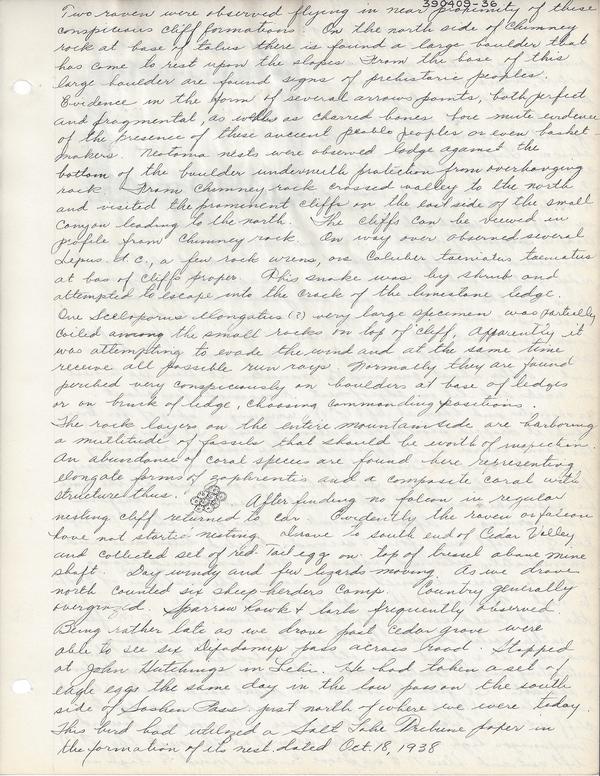 390409-36
Two raven were observed flying in near proximity of these
conspicuous cliff formations. On the north side of Chimney
rock at base of talus there is found a large boulder that
has come to rest upon the slopes. From the base of this
large boulder are found signs of prehistoric peoples.
Evidence in the form of several arrows points, both perfect
and fragmental, as well as charred bones bore mute evidence
of the presence of these ancient pueblo peoples or even basket-
makers. Neotoma nests were observed lodge against the
bottom of the boulder underneath protection from overhanging
rock. From Chimney rock crossed valley to the north
and visited the prominent cliffs on the east side of the small
Canyon leading to the north. The cliffs can be viewed in
profile from Chimney rock. On way over observed several
Lepus. d. c., a few rock wrens, one Coluber taeniatus taeniatus
at bas of cliffs proper. This snake was by shrub and
attempted to escape into the crack of the limestone ledge.
One Sceloporus elongatus (?) very large specimen was partially
coiled among the small rocks on top of cliff, Apparently it
was attempting to evade the wind and at the same time
receive all possible sun rays. Normally they are found
perched very conspiciously on boulders at base of ledges
or on brink of ledge, choosing commanding positions.
The rock layers on the entire mountainside are harboring
a multitude of fossils that should be worth of inspection.
An abundance of coral species are found here representing
elongate forms of zophrentis and a composite coral with
structure thus. After finding no falcon in regular
nesting cliff returned to car. Evidently the raven or falcon
have not startic nesting. drove to south end of Cedar Valley
and collected set of red tail egg on top of kneel above mine
shaft. Day windy and few lizards moving. As we drove
north counted six sheep herders camp. Country generally
overgrazed. Sparrow hawk & larks frequently observed.
Being rather late as we drove past cedar grove were
able to see six Dipodomys pass across road. Stopped
at John Hutchings in Lehi. He had taken a set of
eagle eggs the same day in the low pass on the south
side of Pass. just north of where we were today.
This bird had utilized a Salt Lake Tribune paper in
the formation of its nest dated Oct. 18, 1938